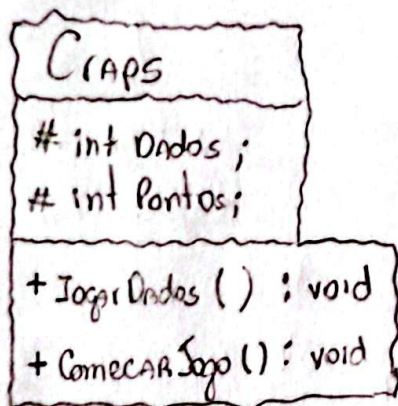 Craps
# int Dados;
# int Pontos;
+ JogarDados ( ) : void
+ ComeCAR Jogo () : void